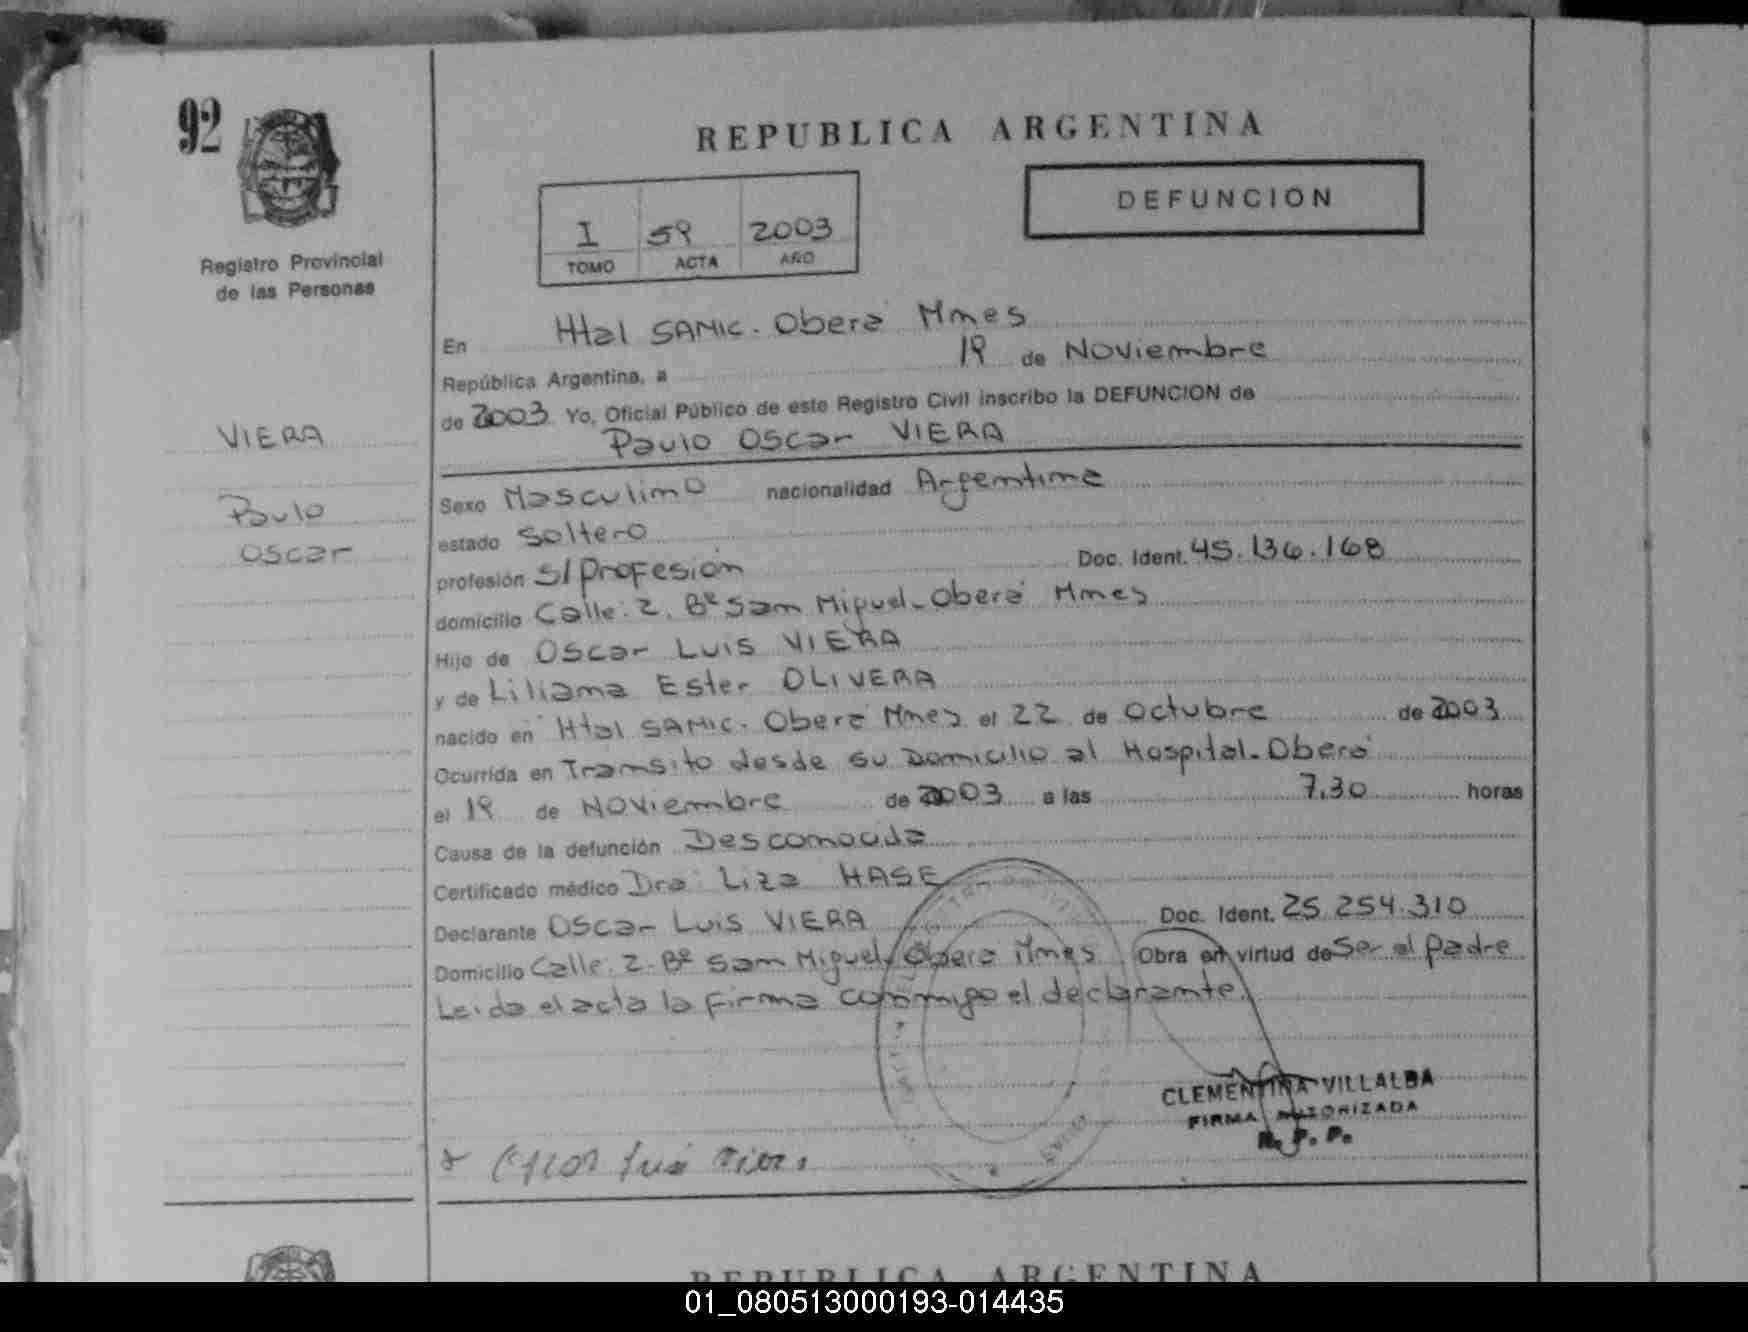 92
Registro Provincial
de las Personas
VIERA
Paulo
Oscar
REPUBLICA ARGENTINA
I 59 2003
TOMO ACTA AÑO
DEFUNCION
En Htal SAMIC. Oberá Mnes
República Argentina, a 19 de Noviembre
de 2003 Yo, Oficial Público de este Registro Civil inscribo la DEFUNCION de
Paulo Oscar VIERA
Sexo Masculino nacionalidad Argentina
estado Soltero
profesión S/Profesión Doc. Ident. 45.136.168
domicilio Calle: 2. Bº San Miguel-Oberá Mnes
Hijo de Oscar Luis VIERA
y de Liliana Ester OLIVERA
nacido en Htal SAMIC. Oberá Mnes el 22 de Octubre de 2003
Ocurrida en Transito desde su Domicilio al Hospital-Oberá
el 19 de Noviembre de 2003 a las 7.30 horas
Causa de la defunción Desconocida
Certificado médico Dra Liza HASE
Declarante Oscar Luis VIERA Doc. Ident. 25.254.310
Domicilio Calle. 2-Bº San Miguel-Oberá Mnes Obra en virtud de Ser el Padre
Leída el acta la firma conmigo el declarante.
CLEMENTINA VILLALBA
FIRMA AUTORIZADA
R. P. P.
REPUBLICA ARGENTINA
01_080513000193-014435